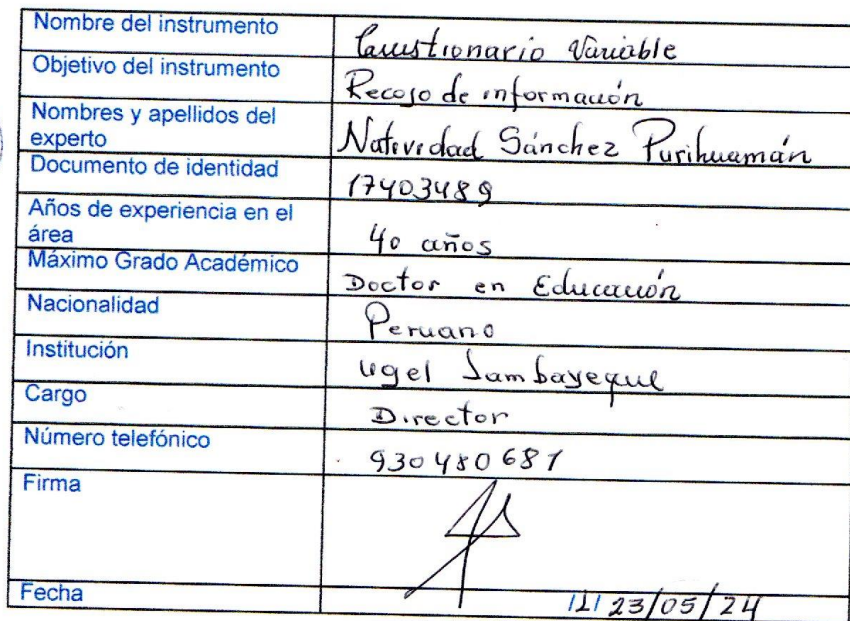 Nombre del instrumento
Cuestionario Variable
Objetivo del instrumento
Recojo de información
Nombres y apellidos del
experto
Natividad Sánchez Purihuamán
Documento de identidad
17403489
Años de experiencia en el
área
40 años
Máximo Grado Académico
Doctor en Educación
Nacionalidad
Peruano
Institución
Ugel Lambayeque
Cargo
Director
Número telefónico
930480681
Firma
Fecha
23/05/24